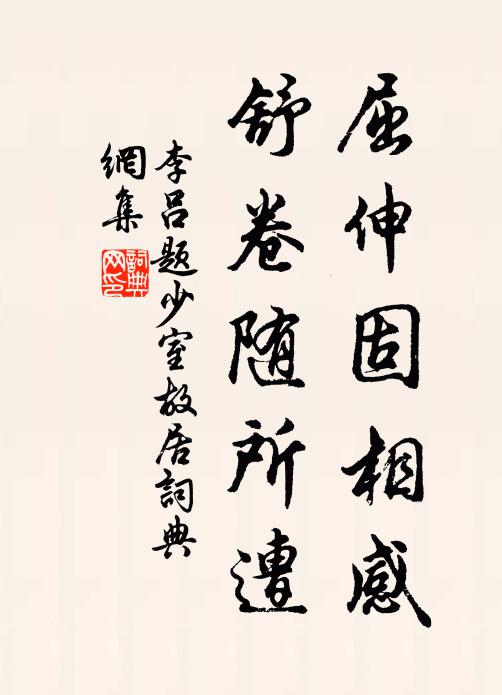 屈伸固相感
舒卷随所遭
李吕题少室故居詞典
網集
詞典
网印